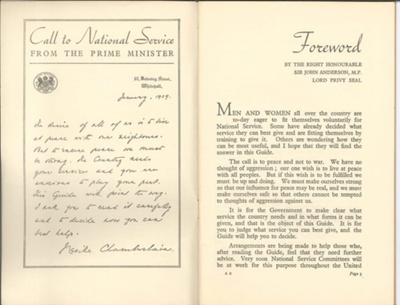 Call to National Service
FROM THE PRIME MINISTER
10, Downing Street,
Whitehall.
January, 1939.
The desire of all of us is to live
at peace with our neighbours.
But to secure peace we must
be strong. The Country needs
your service and you are
anxious to play your part.
This Guide will point the way.
I ask you to read it carefully
and to decide how you can
best help.
Neville Chamberlain
Foreword
BY THE RIGHT HONOURABLE
SIR JOHN ANDERSON, M.P.
LORD PRIVY SEAL
MEN AND WOMEN all over the country are
to-day eager to fit themselves voluntarily for
National Service. Some have already decided what
service they can best give and are fitting themselves by
training to give it. Others are wondering how they
can be most useful, and I hope that they will find the
answer in this Guide.
The call is to peace and not to war. We have no
thought of aggression; our one wish is to live at peace
with all peoples. But if this wish is to be fulfilled we
must be up and doing. We must make ourselves strong
so that our influence for peace may be real, and we must
make ourselves safe so that others cannot be tempted
to thoughts of aggression against us.
It is for the Government to make clear what
service the country needs and in what forms it can be
given, and that is the object of this Guide. It is for
you to judge what service you can best give, and the
Guide will help you to decide.
Arrangements are being made to help those who,
after reading the Guide, feel that they need further
advice. Very soon National Service Committees will
be at work for this purpose throughout the United
Page 3